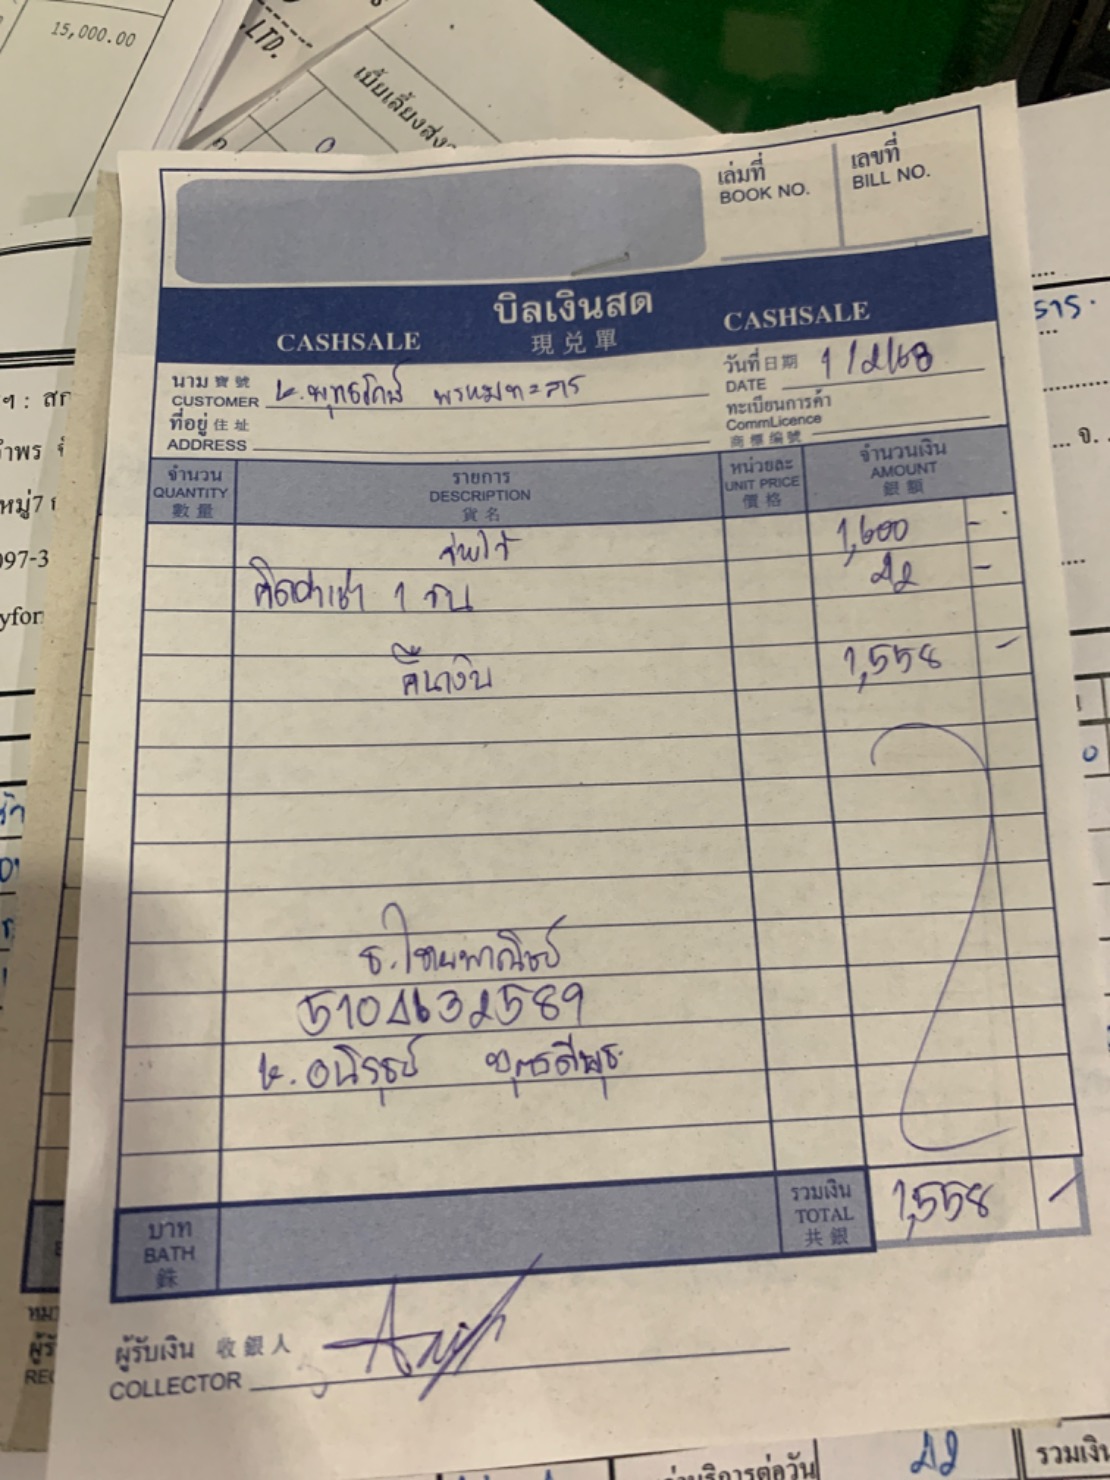 15,000.00
LTD.
เบี้ยเลี้ยงส่ง
เล่มที่
BOOK NO.
เลขที่
BILL NO.
บิลเงินสด
CASHSALE 現兌單 CASHSALE
นาม 寶號
CUSTOMER
พรหมทะสาร
วันที่ 日期
DATE 1/2/68
ที่อยู่ 住址
ADDRESS
ทะเบียนการค้า
CommLicence
商標編號
จำนวน
QUANTITY
數量
รายการ
DESCRIPTION
貨名
หน่วยละ
UNIT PRICE
價格
จำนวนเงิน
AMOUNT
銀額
1,600 -
คิดค่าเช่า 1 วัน 42 -
คืนเงิน 1,558 -
ธ.ไทยพาณิชย์
5104632589
ค.อนิรุธย์
บาท
BATH
銖
รวมเงิน
TOTAL
共銀
1,558 -
ผู้รับเงิน 收銀人
COLLECTOR
42
รวมเงิน
หมู่7
097-3